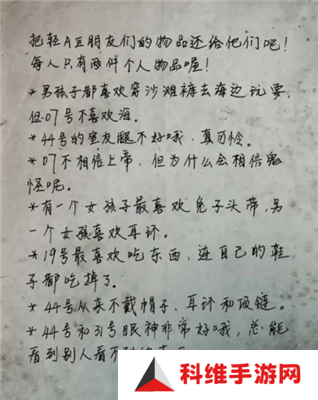 把轻A区朋友们的物品还给他们吧!
每人只有两件个人物品喔!
*男孩子都喜欢穿沙滩裤去海边玩耍,
但07号不喜欢海。
*44号的室友腿不好哦,真可怜。
*07不相信上帝,但为什么会相信鬼
怪呢。
*有一个女孩子最喜欢兔子头带,另
一个女孩喜欢耳环。
*19号最喜欢吃东西,连自己的鞋
子都吃掉了。
*44号从来不戴帽子、耳环和项链。
*44号和31号眼神非常好哦,总能
看到别人看不到的东西
科维手游网